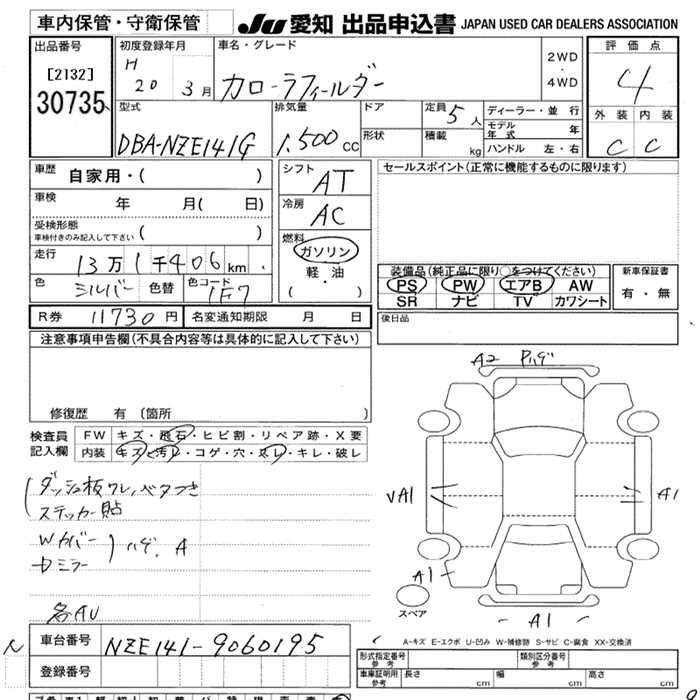 車内保管・守衛保管
JU 愛知 出品申込書 JAPAN USED CAR DEALERS ASSOCIATION
出品番号
[2132]
30735
初度登録年月
H 20 3月
車名・グレード
カローラフィールダー
2WD
・
4WD
評価点
4
外装 内装
C C
型式
DBA-NZE141G
排気量
1.500cc
ドア
形状
定員 5人
積載 kg
ディーラー・並行
モデル年式 年
ハンドル 左・右
車歴 自家用・( )
車検 年 月( 日)
受検形態
車検付きのみ記入して下さい ( )
走行 13万1千406km
色 シルバー 色替 色コード 1F7
シフト
AT
冷房
AC
燃料
ガソリン
軽・油
( ・ )
セールスポイント(正常に機能するものに限ります)
装備品(純正品に限り○をつけてください)
PS PW エアB AW
SR ナビ TV カワシート
新車保証書
有・無
R券 11730円 名変通知期限 月 日
後日品
注意事項申告欄(不具合内容等は具体的に記入して下さい)
修復歴 有 〔箇所 〕
検査員記入欄
FW キズ・飛石・ヒビ割・リペア跡・X要
内装 キズ・汚レ・コゲ・穴・スレ・キレ・破レ
ダッシュ板ワレ、ベタつき
ステッカー貼
Wカバー
ドミラー
ハゲ、A
各AU
A2 Pハゲ
VA1
A1
A1
A1
スペア
A-キズ E-エクボ U-凹み W-補修跡 S-サビ C-腐食 XX-交換済
車台番号 NZE141-9060195
登録番号
形式指定番号
参考
類別区分番号
参考
車庫証明用
参考
長さ cm 幅 cm 高さ cm